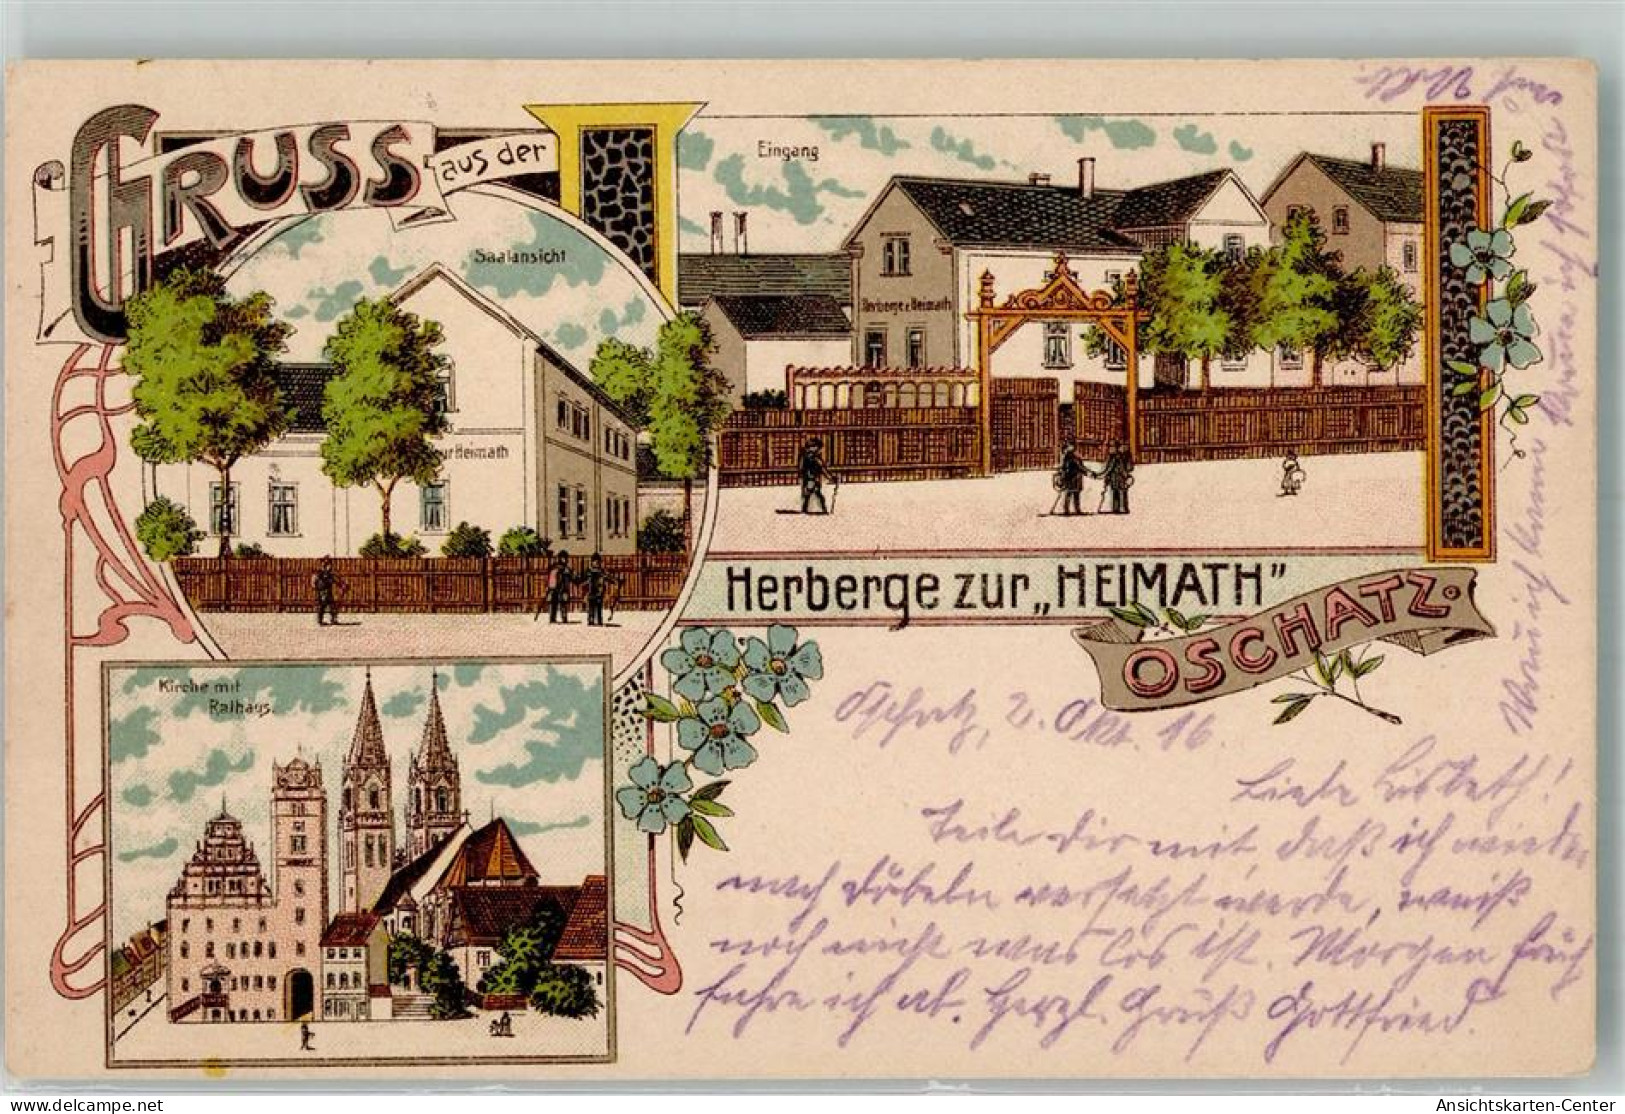 GRUSS aus der
Saalansicht
zur Heimath
Eingang
Herberge z. Heimath
Herberge zur „HEIMATH"
OSCHATZ.
Kirche mit
Rathaus.
Oschatz, 2. Okt. 16.
Liebe Lisbeth!
Teile Dir mit, daß ich wieder
nach Döbeln versetzt werde, weiß
noch nicht was los ist. Morgen früh
fahre ich ab. Herzl. Gruß Gottfried.
ich
delcampe.net
Ansichtskarten-Center